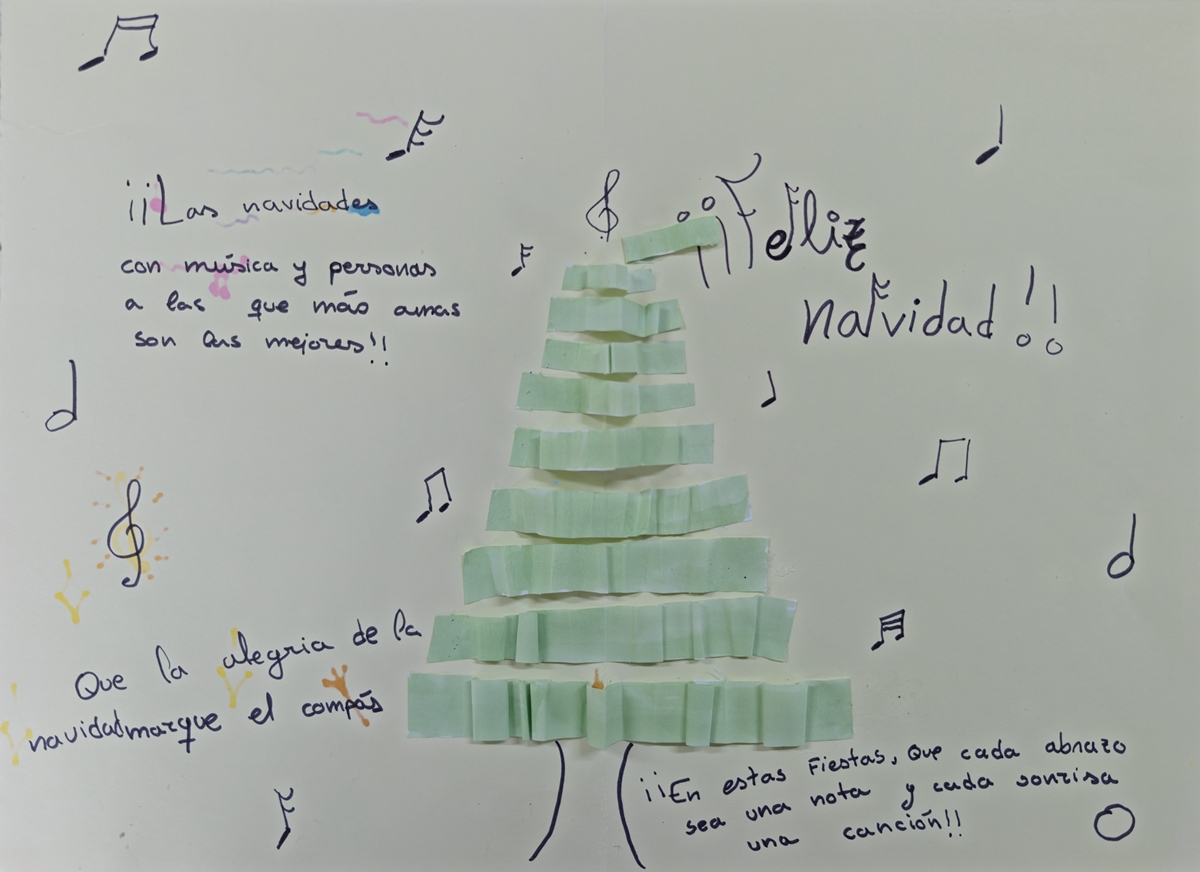 ¡¡Las navidades
con música y personas
a las que más amas
son las mejores!!
¡¡Feliz
navidad!!
Que la alegria de la
navidad marque el compás
¡¡En estas Fiestas, que cada abrazo
sea una nota y cada sonrisa
una canción!!